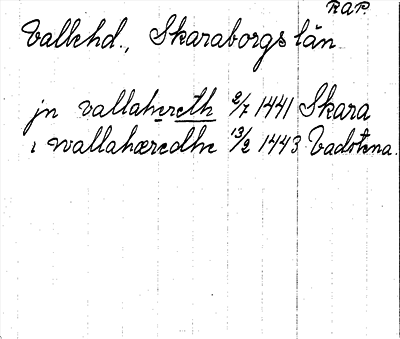 RAP.
Valkhd., Skaraborgs län
jn vallahereth 2/7 1441 Skara
i wallahæredhe 13/2 1443 Vadstena.